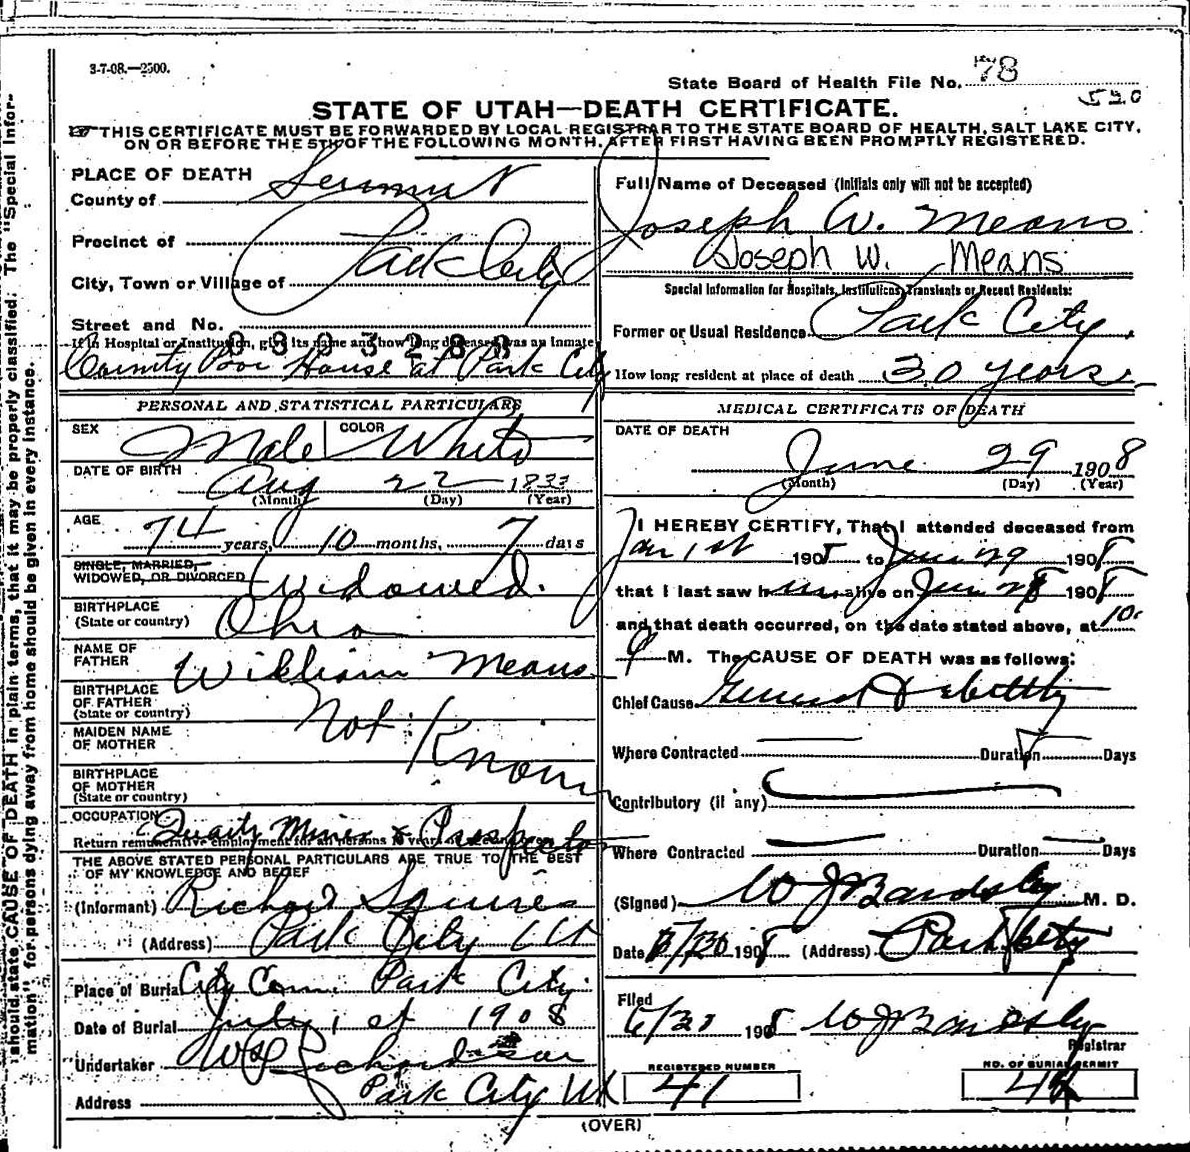 3-7-08.—2500.
State Board of Health File No. 78
520
STATE OF UTAH—DEATH CERTIFICATE.
THIS CERTIFICATE MUST BE FORWARDED BY LOCAL REGISTRAR TO THE STATE BOARD OF HEALTH, SALT LAKE CITY,
ON OR BEFORE THE 5TH OF THE FOLLOWING MONTH, AFTER FIRST HAVING BEEN PROMPTLY REGISTERED.
PLACE OF DEATH
County of Summit
Precinct of
City, Town or Village of Park City
Street and No.
If in Hospital or Institution, give its name and how long deceased was an Inmate
County Poor House at Park City
Full Name of Deceased (Initials only will not be accepted)
Joseph W. Means
Joseph W. Means
Special Information for Hospitals, Institutions, Transients or Recent Residents:
Former or Usual Residence Park City.
How long resident at place of death 30 years
PERSONAL AND STATISTICAL PARTICULARS
SEX Male COLOR White
DATE OF BIRTH Aug 22 1833
(Month) (Day) (Year)
AGE 74 years, 10 months, 7 days
SINGLE, MARRIED,
WIDOWED, OR DIVORCED Widowed.
BIRTHPLACE
(State or country) Ohio
NAME OF
FATHER William Means
BIRTHPLACE
OF FATHER
(State or country) Not
MAIDEN NAME
OF MOTHER Known
BIRTHPLACE
OF MOTHER
(State or country)
OCCUPATION Quartz Miner & Prospector
Return remunerative employment for all persons 10 years
THE ABOVE STATED PERSONAL PARTICULARS ARE TRUE TO THE BEST
OF MY KNOWLEDGE AND BELIEF
(Informant) Richard Squires
(Address) Park City Ut
Place of Burial City Cem. Park City.
Date of Burial July 1st 1908
Undertaker Richardson
Address Park City Ut
MEDICAL CERTIFICATE OF DEATH
DATE OF DEATH
June 29 1908
(Month) (Day) (Year)
I HEREBY CERTIFY, That I attended deceased from
Jan 1st 1908 to Jun 29 1908
that I last saw him alive on Jun 28 1908
and that death occurred, on the date stated above, at 10
M. The CAUSE OF DEATH was as follows:
Chief Cause General Debility
Where Contracted Duration Days
Contributory (if any)
Where Contracted Duration Days
(Signed) W J Bardsley M. D.
Date 6/30 1908 (Address) Park City
Filed
6/30 1908 W J Bardsley
Registrar
REGISTERED NUMBER
41
NO. OF BURIAL PERMIT
(OVER)
should state CAUSE OF DEATH in plain terms, that it may be properly classified. The "Special Infor-
mation" for persons dying away from home should be given in every instance.